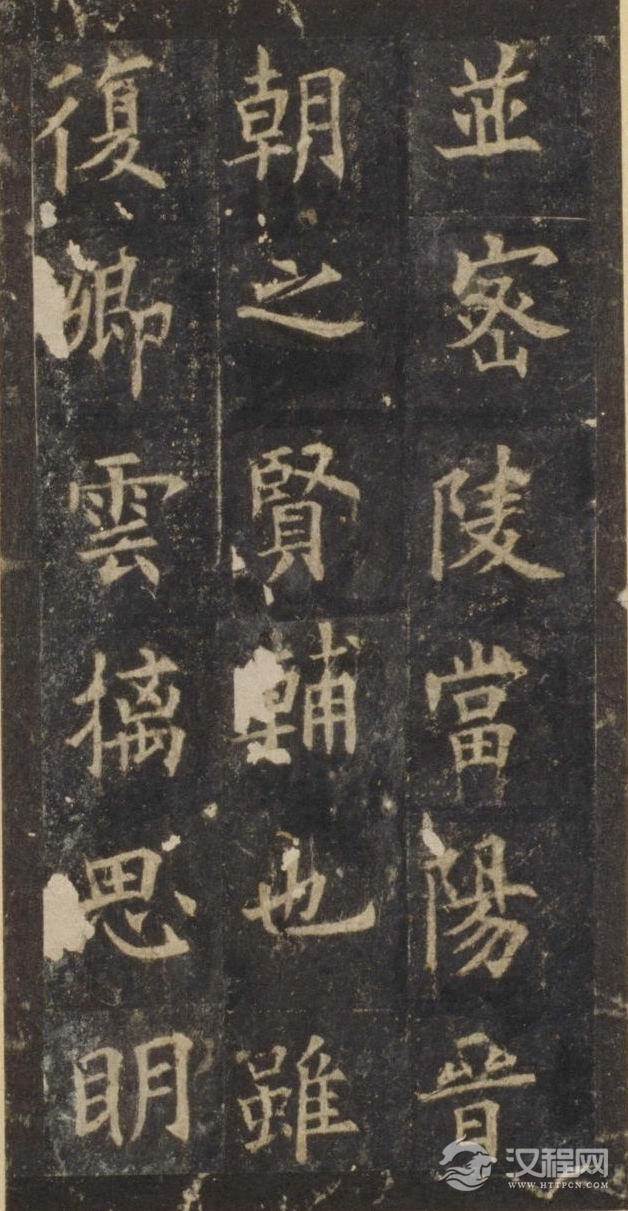 並密陵當陽晉
朝之賢輔也雖
復卿雲摛思明
汉程网
WWW.HTTPCN.COM